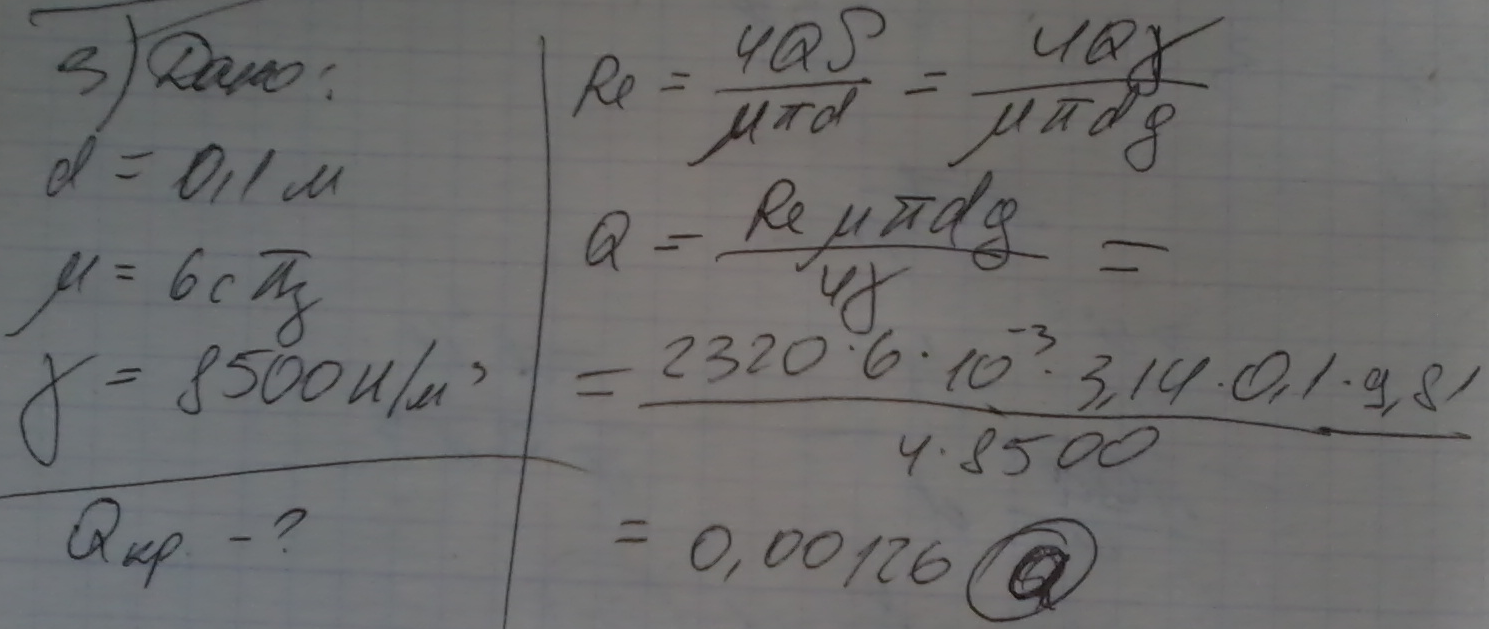 3) Дано:
d = 0,1 м
μ = 6 сПз
γ = 8500 н/м³
Qкр. - ?
Re = 4Qρ/μπd = 4Qγ/μπdg
Q = Re μπdg/4γ =
= 2320·6·10⁻³·3,14·0,1·9,81/4·8500
= 0,00126 а